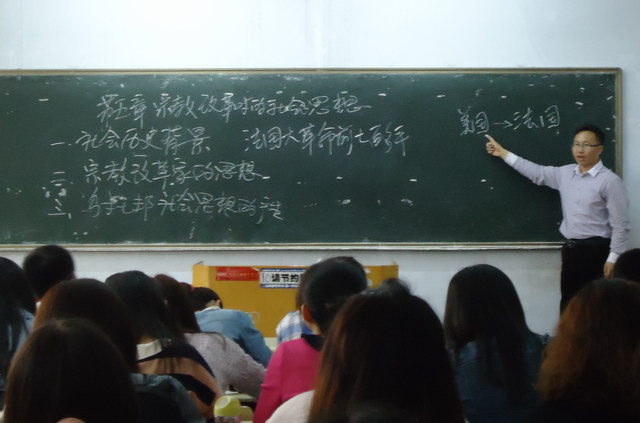 第五章 宗教改革时的社会思想
一、社会历史背景 法国大革命前
美国→法国
二、宗教改革家的思想
三、乌托邦社会思想的产
请节约